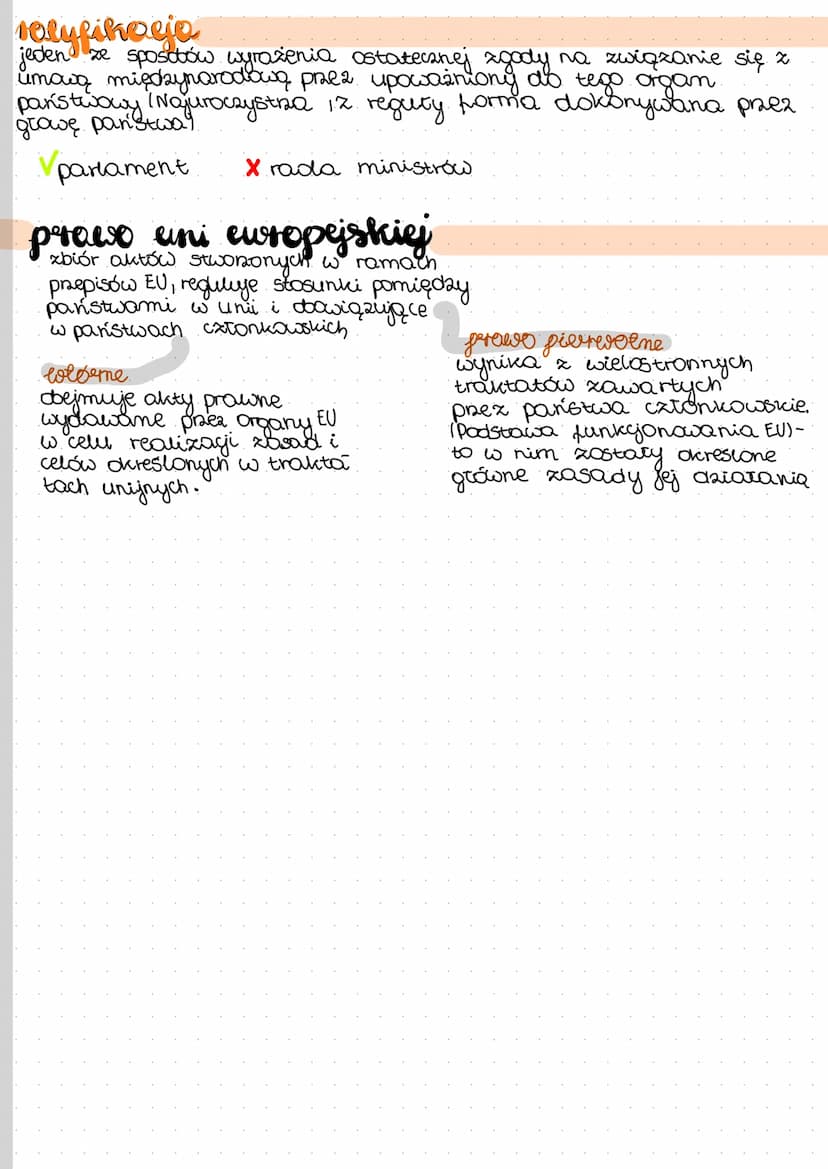 ratyfikacja
jeden ze sposobów wyrażenia ostatecznej zgody na związanie się z
umową międzynarodową przez upoważniony do tego organ
państwowy (Najuroczystsza i z reguły forma dokonywana przez
głowę państwa)
✓ parlament ✗ rada ministrów
prawo uni europejskiej
zbiór aktów stworzonych w ramach
przepisów EU, reguluje stosunki pomiędzy
państwami w unii i obowiązujące
w państwach członkowskich
prawo pierwotne
wynika z wielostronnych
traktatów zawartych
przez państwa członkowskie.
(Podstawa funkcjonowania EU)-
to w nim zostały określone
główne zasady jej działania
wtórne
obejmuje akty prawne
wydawane przez organy EU
w celu realizacji zasad i
celów określonych w trakta
tach unijnych.